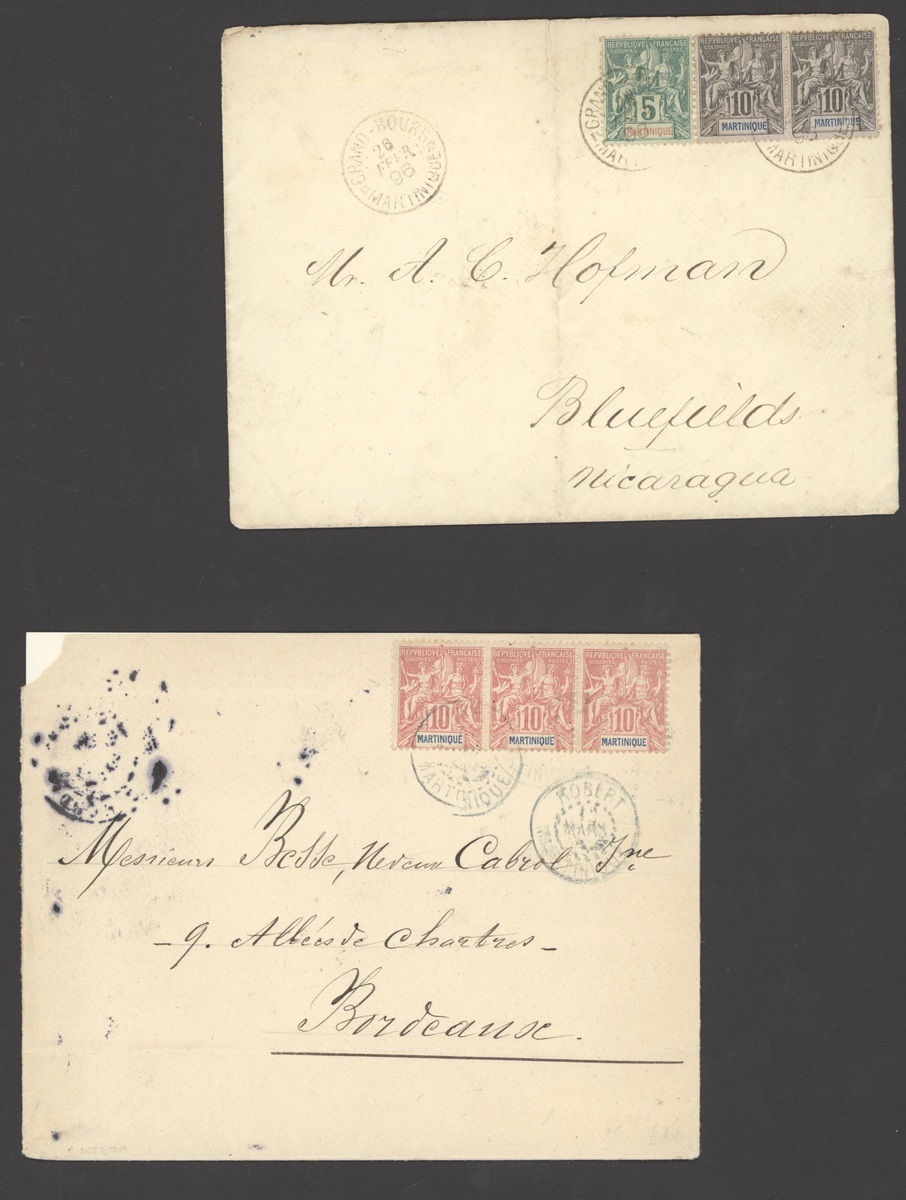 REPVBLIQUE FRANÇAISE REPVBLIQUE FRANÇAISE REPVBLIQUE FRANÇAISE
COLONIES POSTES COLONIES POSTES COLONIES POSTES
5 10 10
MARTINIQUE MARTINIQUE MARTINIQUE
GRAND
MART
MARTINIQUE
GRAND-BOURG
26
FEVR
96
MARTINIQUE
Mr. A. C. Hofman
Bluefields
Nicaragua
REPVBLIQUE FRANÇAISE REPVBLIQUE FRANÇAISE REPVBLIQUE FRANÇAISE
COLONIES POSTES COLONIES POSTES COLONIES POSTES
10 10 10
MARTINIQUE MARTINIQUE MARTINIQUE
MARTINIQUE
ROBERT
MARS
Messieurs Besse, Neveux Cabrol Jne
- 9. Allées de Chartres -
Bordeaux.